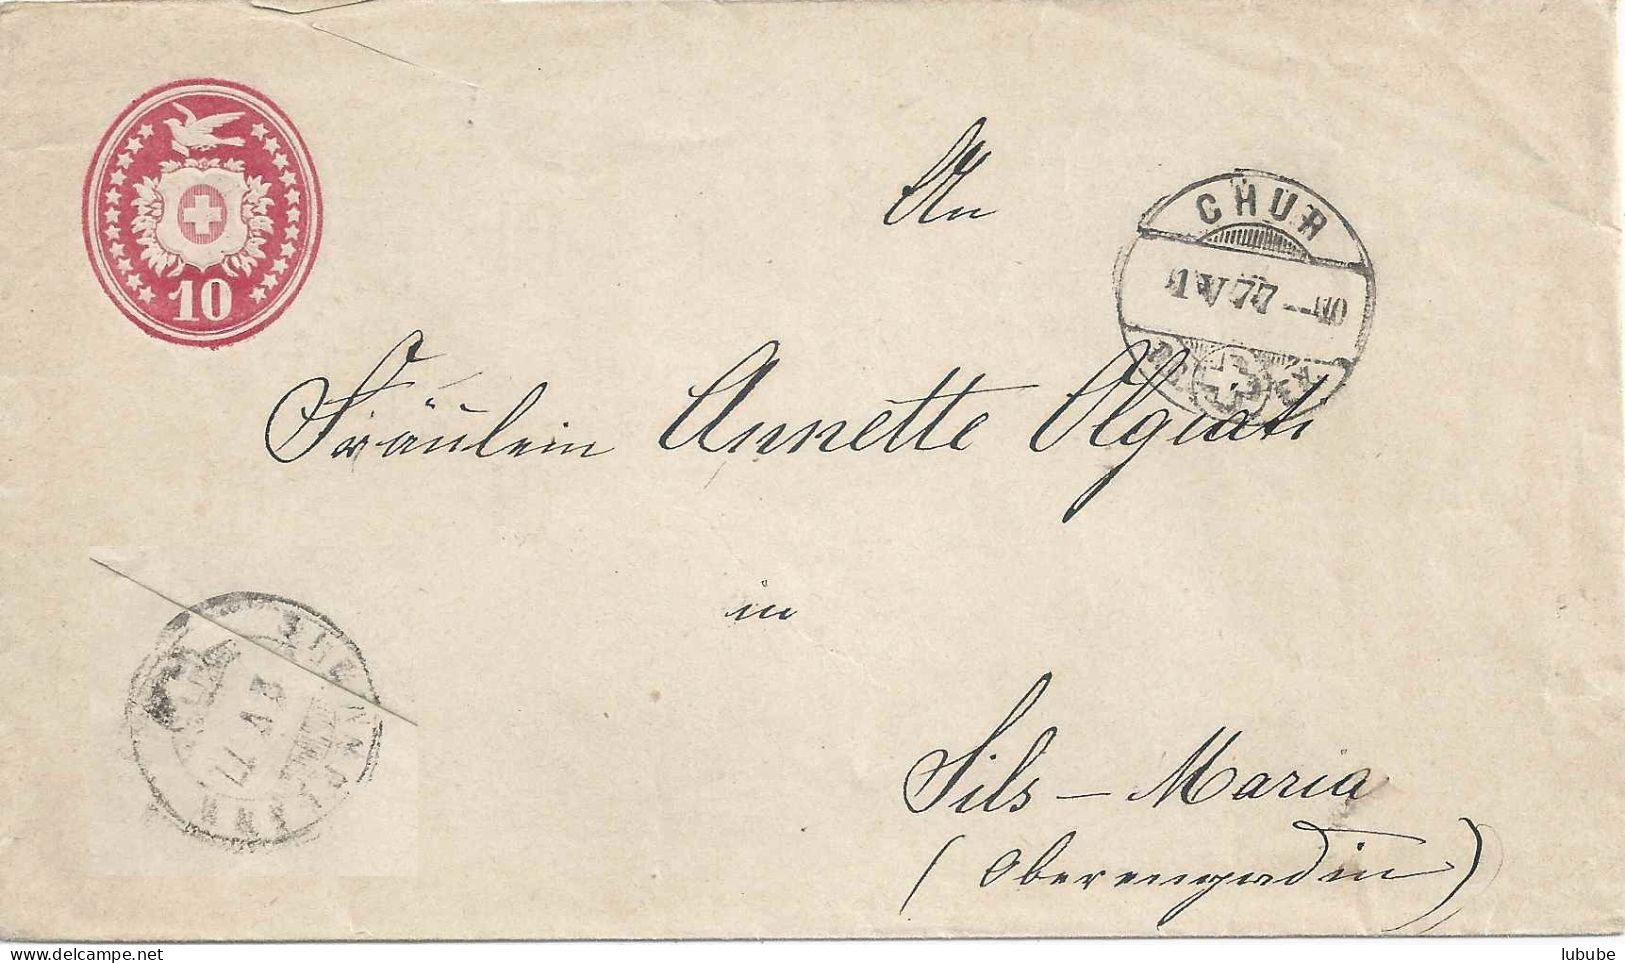 10
An
CHUR
1 V 77 – 10
EX.
Fräulein Annette Olgiati
in
Sils – Maria
(Oberengadin)
V 77
www.delcampe.net
lubube